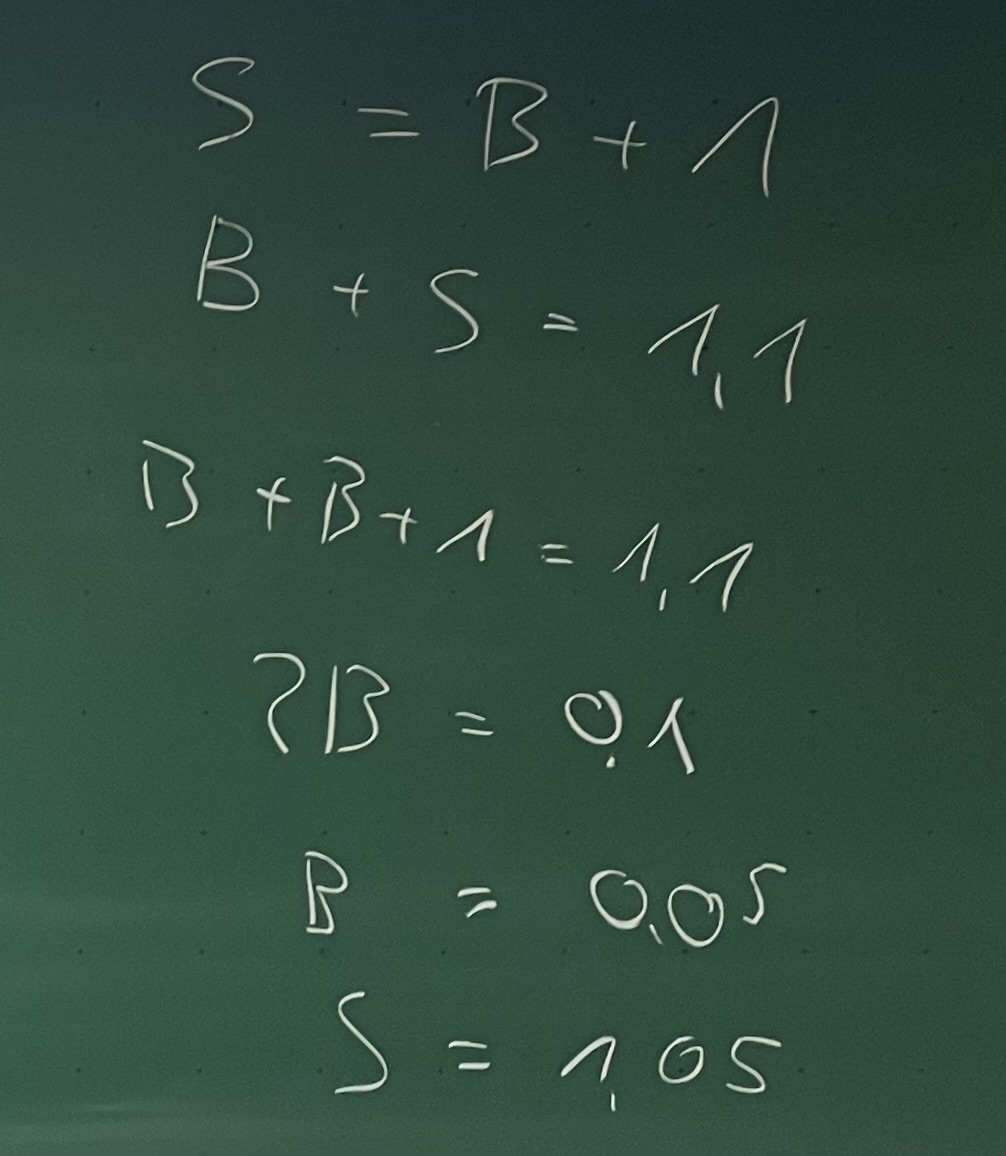 S = B + 1
B + S = 1,1
B + B + 1 = 1,1
2B = 0,1
B = 0,05
S = 1,05